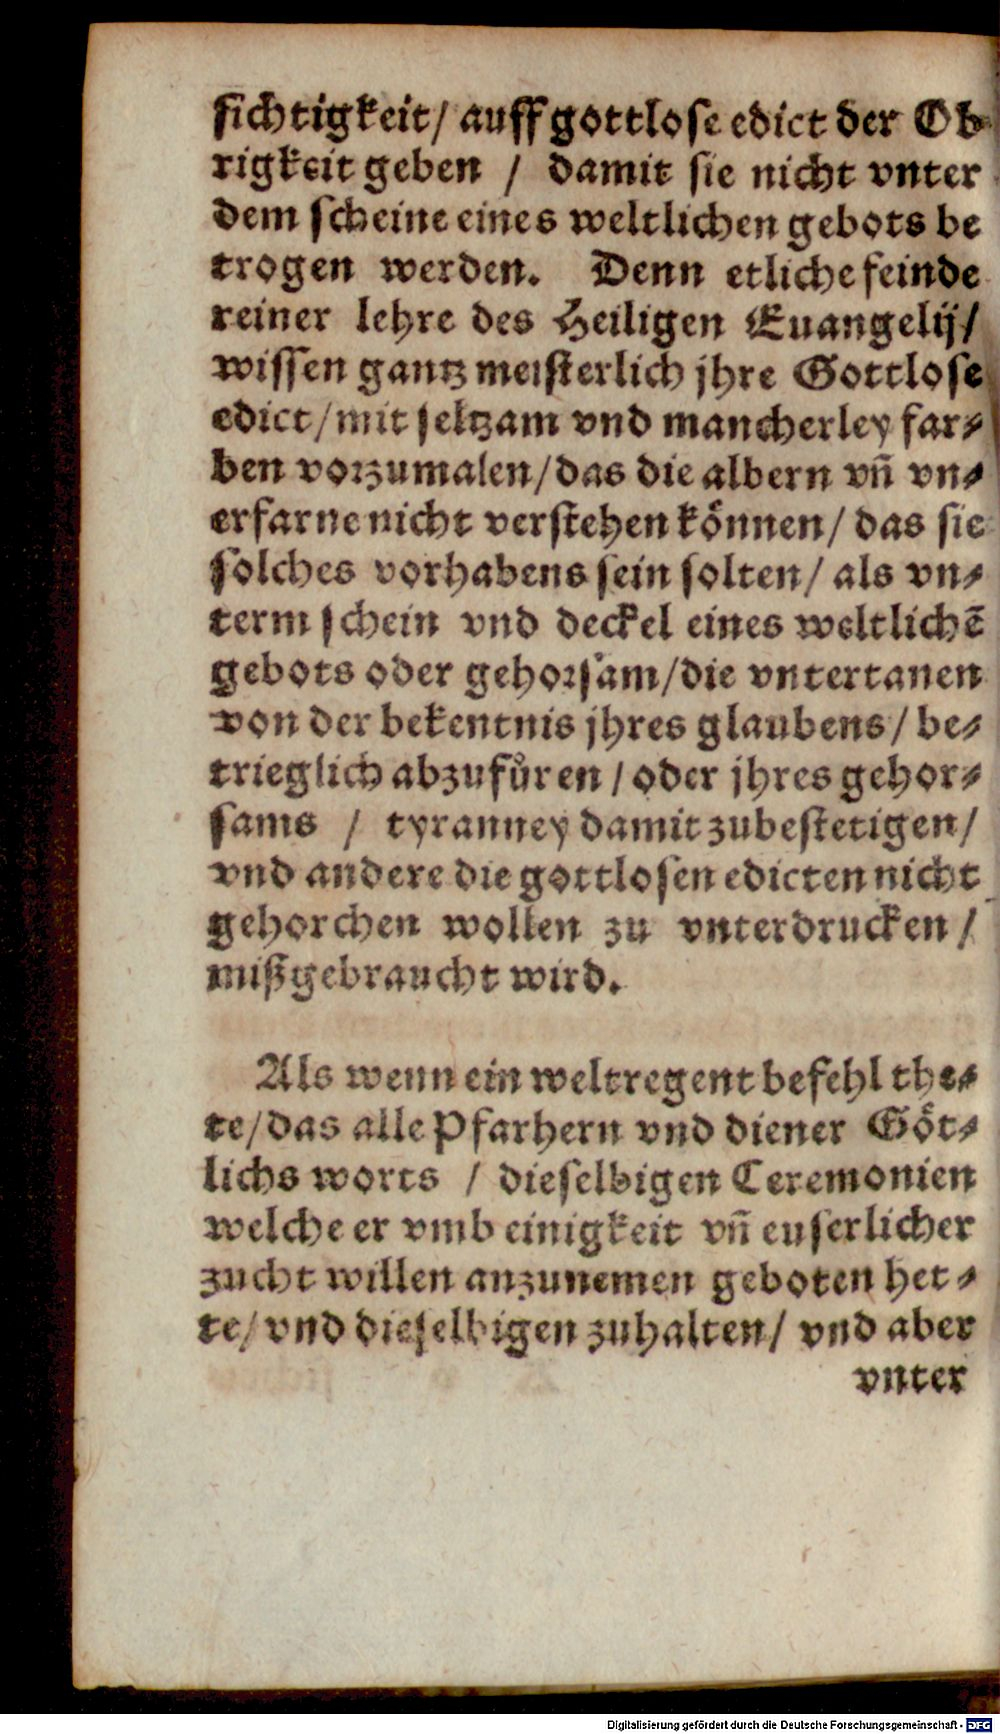 sichtigkeit/ auff gottlose edict der Ob-
rigkeit geben / damit sie nicht vnter
dem scheine eines weltlichen gebots be
trogen werden. Denn etliche feinde
reiner lehre des Heiligen Euangelij/
wissen gantz meisterlich jhre Gottlose
edict/mit seltzam vnd mancherley far⸗
ben vorzumalen/das die albern vñ vn⸗
erfarne nicht verstehen koͤnnen/ das sie
solches vorhabens sein solten/ als vn⸗
term schein vnd deckel eines weltlichẽ
gebots oder gehorsam/die vntertanen
von der bekentnis jhres glaubens/ be⸗
trieglich abzufuͤren / oder jhres gehor⸗
sams / tyranney damit zubestetigen/
vnd andere die gottlosen edicten nicht
gehorchen wollen zu vnterdrucken /
mißgebraucht wird.
Als wenn ein weltregent befehl the⸗
te/das alle Pfarhern vnd diener Goͤt⸗
lichs worts / dieselbigen Ceremonien
welche er vmb einigkeit vñ euserlicher
zucht willen anzunemen geboten het⸗
te/ vnd dieselbigen zuhalten/ vnd aber
vnter
Digitalisierung gefördert durch die Deutsche Forschungsgemeinschaft - DFG